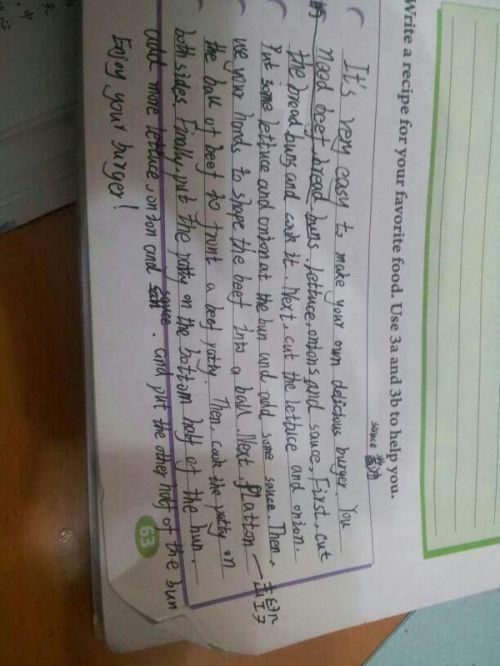 Write a recipe for your favorite food. Use 3a and 3b to help you.
sauce 酱汁
It's very easy to make your own delicious burger. You
need beef, bread buns, lettuce, onions and sauce. First, cut
the bread buns and cook it. Next, cut the lettuce and onion.
Put some lettuce and onion at the bun and add some sauce. Then,
use your hands to shape the beef into a ball. Next flatton
the ball of beef to a beef patty. Then, cook the patty on
both sides. Finally, put the patty on the bottom half of the bun.
add more lettuce, onion and sauce. and put the other half of the bun
Enjoy your burger!
63